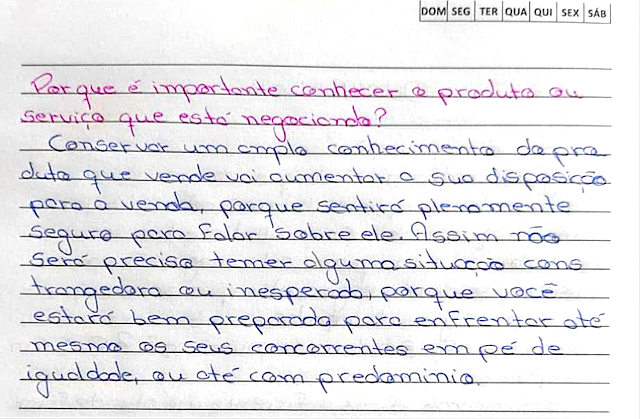 DOM SEG TER QUA QUI SEX SÁB
Por que é importante conhecer o produto ou
serviço que está negociando?
Conservar um amplo conhecimento do pro
duto que vende vai aumentar a sua disposição
para a venda, porque sentirá plenamente
seguro para falar sobre ele. Assim não
será preciso temer alguma situação cons
trangedora ou inesperada, porque você
estará bem preparado para enfrentar até
mesmo os seus concorrentes em pé de
igualdade, ou até com predominio.